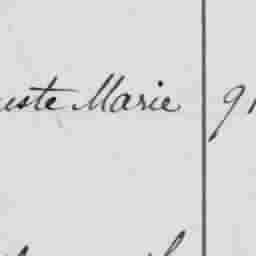 uste Marie 91